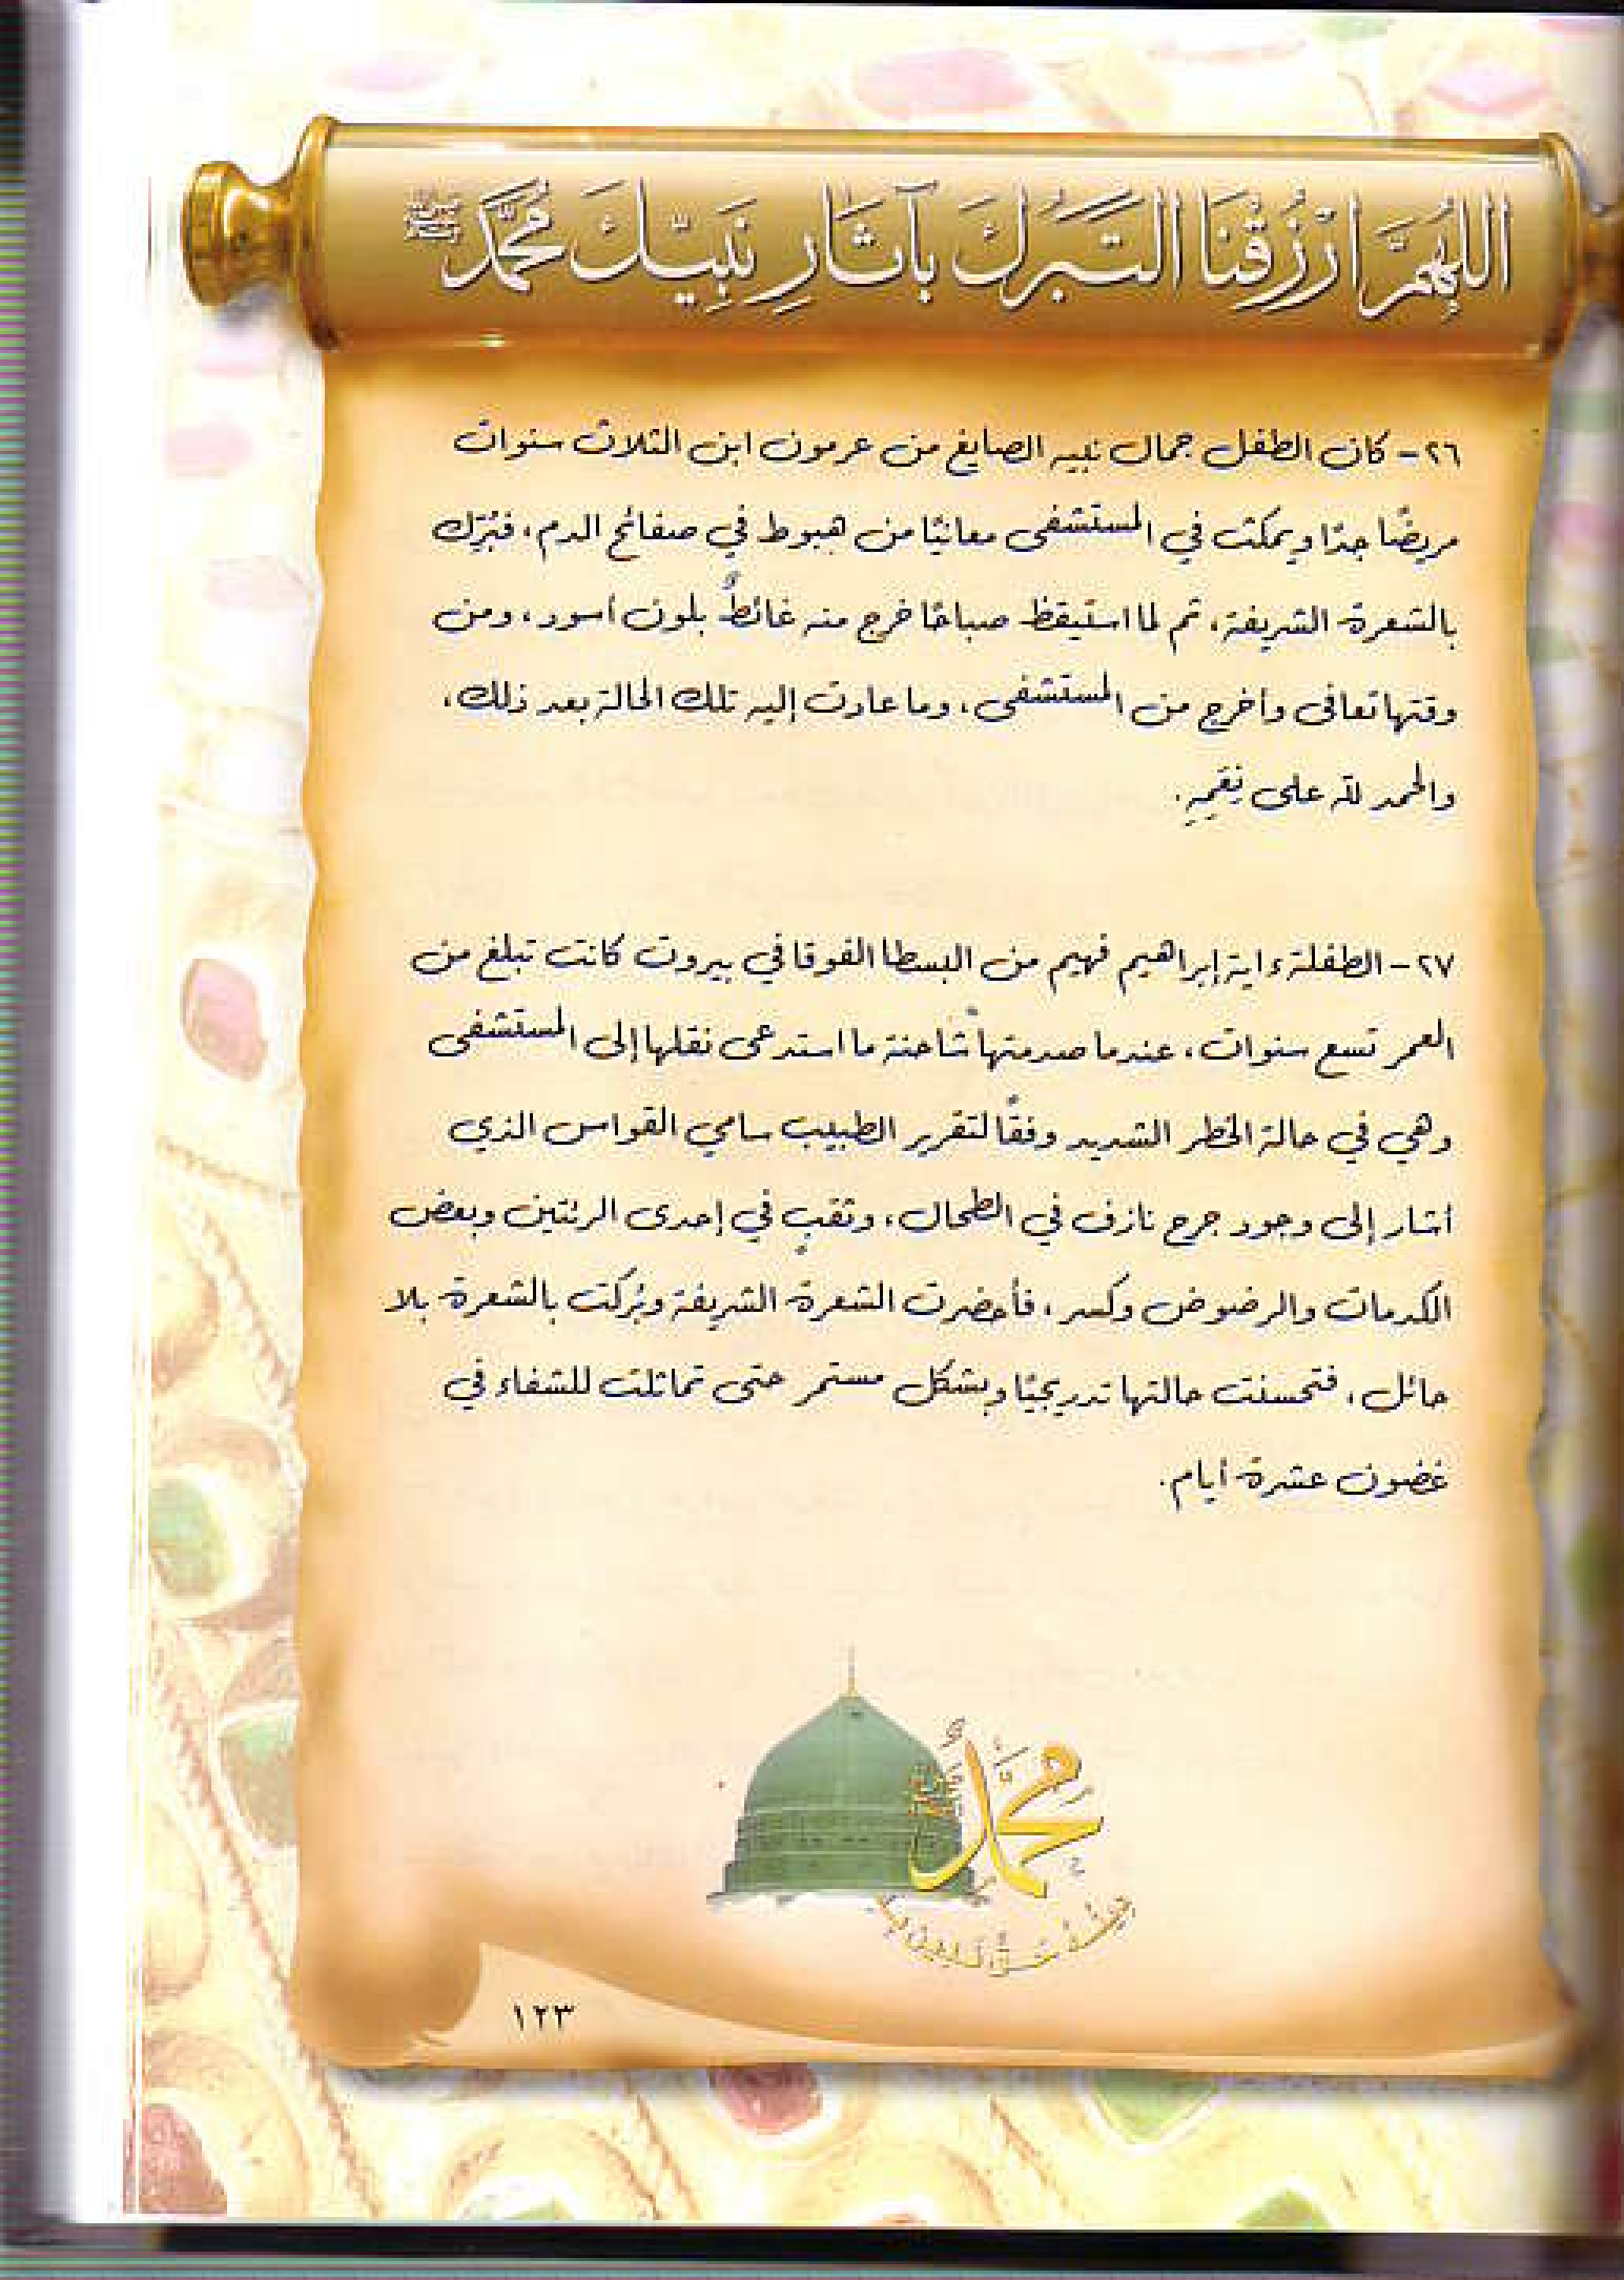 اللهُمَّ ارْزُقْنَا التَبَرُّكَ بآثَارِ نَبِيِّكَ مُحَمَّدٍ ﷺ
٢٦- كان الطفل جمال نبيه الصايغ من عرمون ابن الثلاث سنوات
مريضًا جدًا ويمكث في المستشفى معانيًا من هبوط في صفائح الدم، فبُرّك
بالشعرة الشريفة، ثم لما استيقظ صباحًا خرج منه غائطٌ بلون أسود، ومن
وقتها تعافى وأخرج من المستشفى، وما عادت إليه تلك الحالة بعد ذلك،
والحمد لله على نِعَمِهِ.
٢٧- الطفلة ءاية إبراهيم فهيم من البسطا الفوقا في بيروت كانت تبلغ من
العمر تسع سنوات، عندما صدمتها شاحنة ما استدعى نقلها إلى المستشفى
وهي في حالة الخطر الشديد وفقًا لتقرير الطبيب سامي القواس الذي
أشار إلى وجود جرح نازف في الطحال، وثقبٍ في إحدى الرئتين وبعض
الكدمات والرضوض وكسر، فأحضرت الشعرة الشريفة وبُركت بالشعرة بلا
حائل، فتحسنت حالتها تدريجيًا وبشكل مستمر حتى تماثلت للشفاء في
غضون عشرة أيام.
محمد
١٢٣